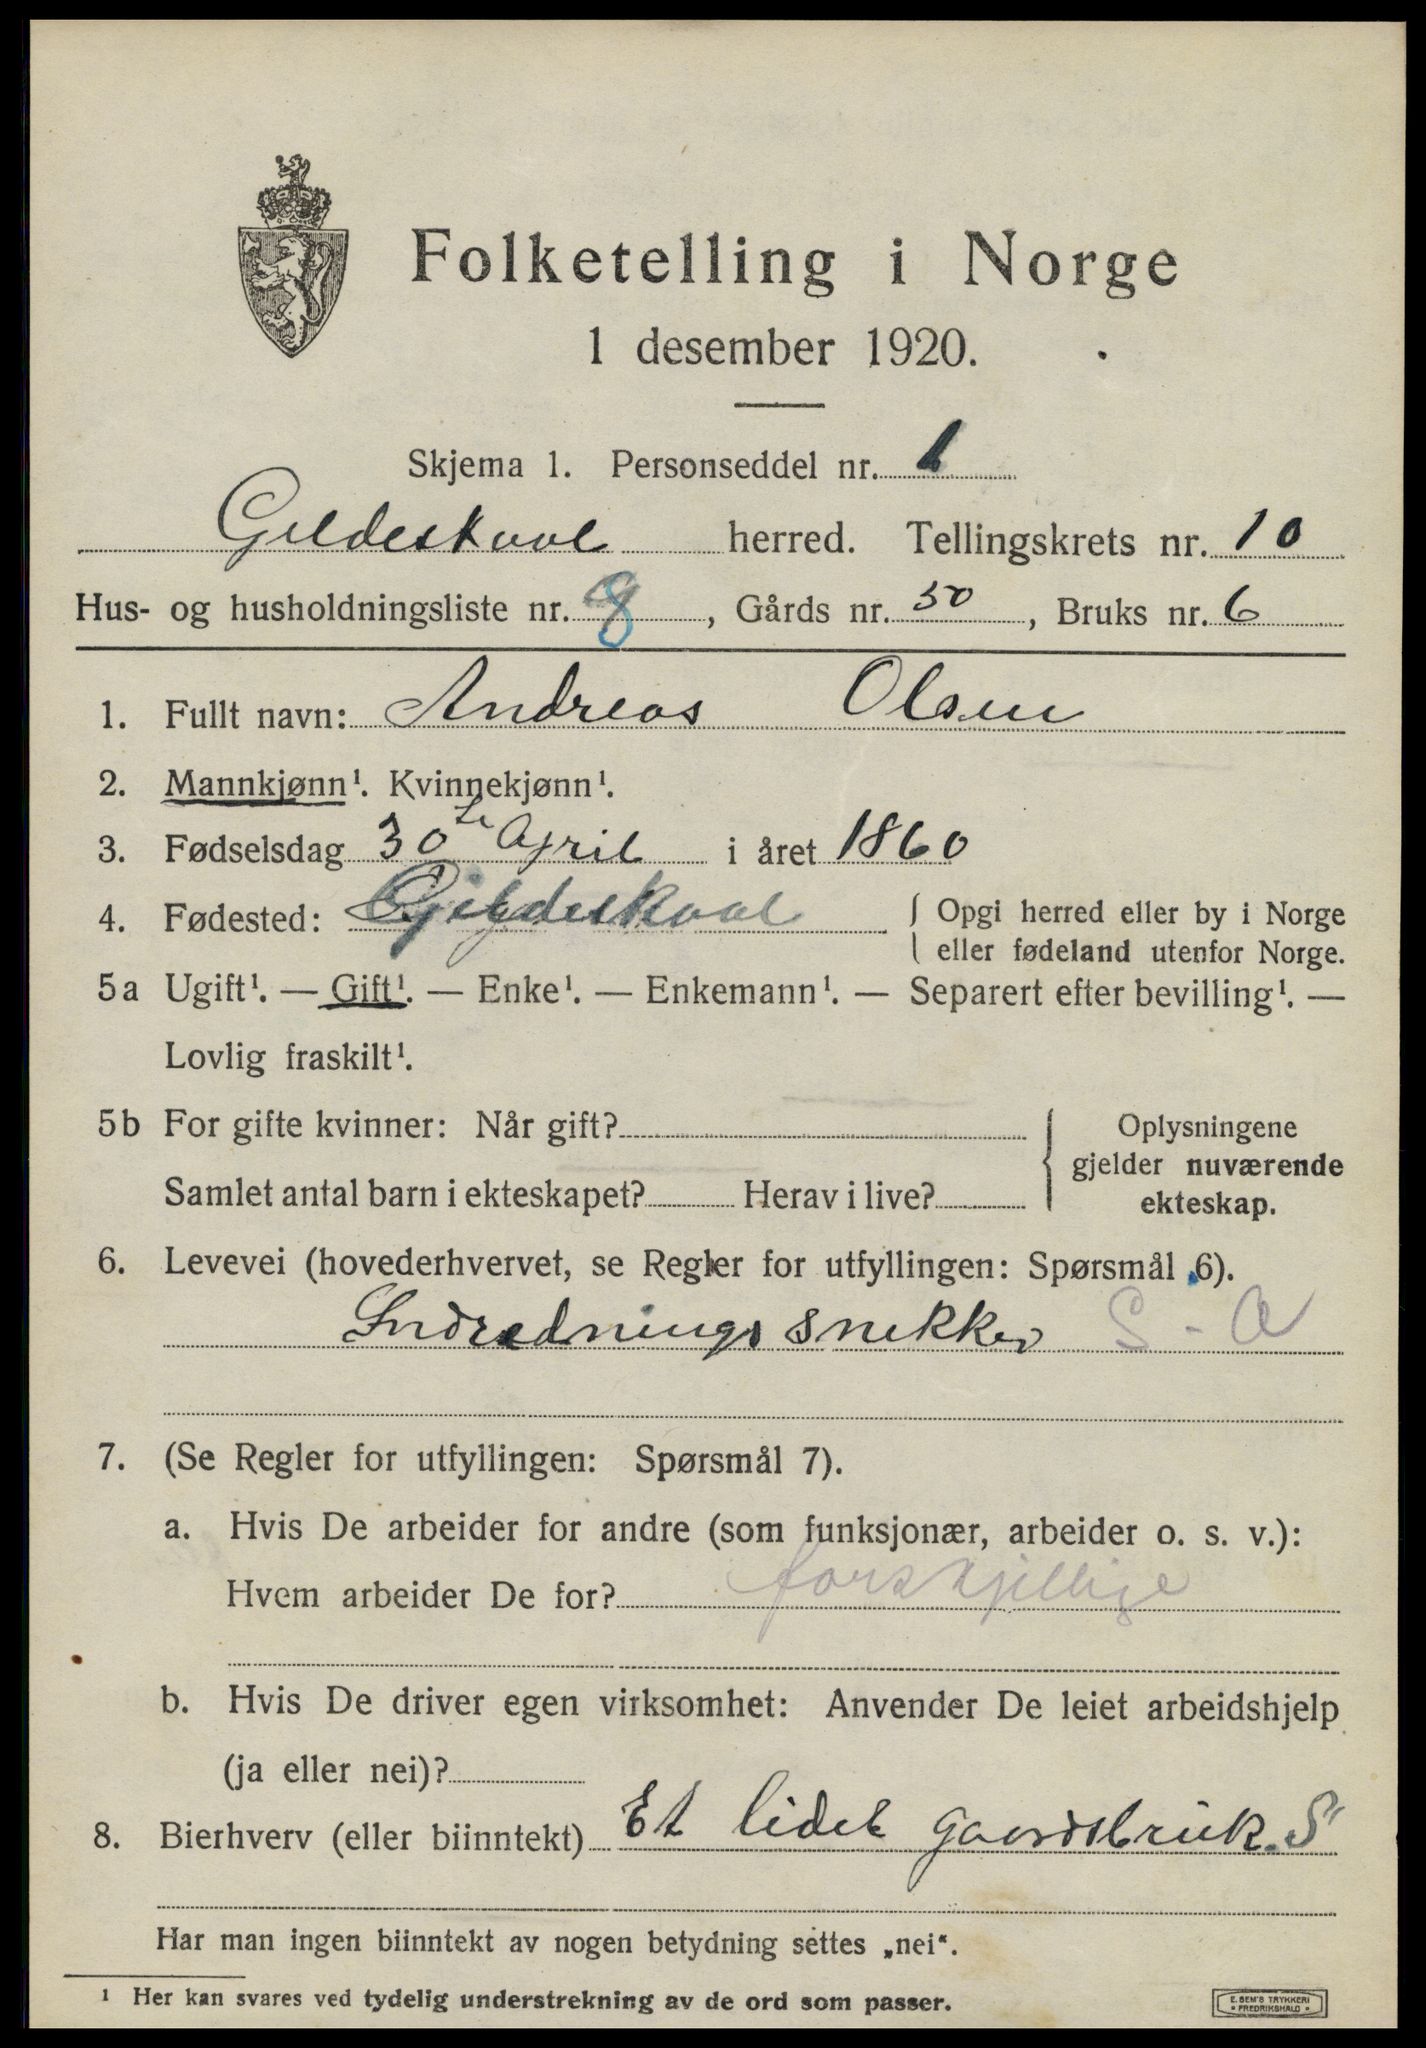 Folketelling i Norge
1 desember 1920.
Skjema 1. Personseddel nr. 1
Gildeskaal herred. Tellingskrets nr. 10
Hus- og husholdningsliste nr. 8, Gårds nr. 50, Bruks nr. 6
1. Fullt navn: Andreas Olsen
2. Mannkjønn¹. Kvinnekjønn¹.
3. Fødselsdag 30te April i året 1860
4. Fødested: Gildeskaal { Opgi herred eller by i Norge
eller fødeland utenfor Norge.
5a Ugift¹. — Gift¹. — Enke¹. — Enkemann¹. — Separert efter bevilling¹. —
Lovlig fraskilt¹.
5b For gifte kvinner: Når gift?
Samlet antal barn i ekteskapet? Herav i live?
Oplysningene
gjelder nuværende
ekteskap.
6. Levevei (hovederhvervet, se Regler for utfyllingen: Spørsmål 6).
Indrednings snekker S - A
7. (Se Regler for utfyllingen: Spørsmål 7).
a. Hvis De arbeider for andre (som funksjonær, arbeider o. s. v.):
Hvem arbeider De for? forskjellige
b. Hvis De driver egen virksomhet: Anvender De leiet arbeidshjelp
(ja eller nei)?
8. Bierhverv (eller biinntekt) Et lidet gaardsbruk. S
Har man ingen biinntekt av nogen betydning settes „nei“.
¹ Her kan svares ved tydelig understrekning av de ord som passer.
E. SEM'S TRYKKERI
• FREDRIKSHALD •